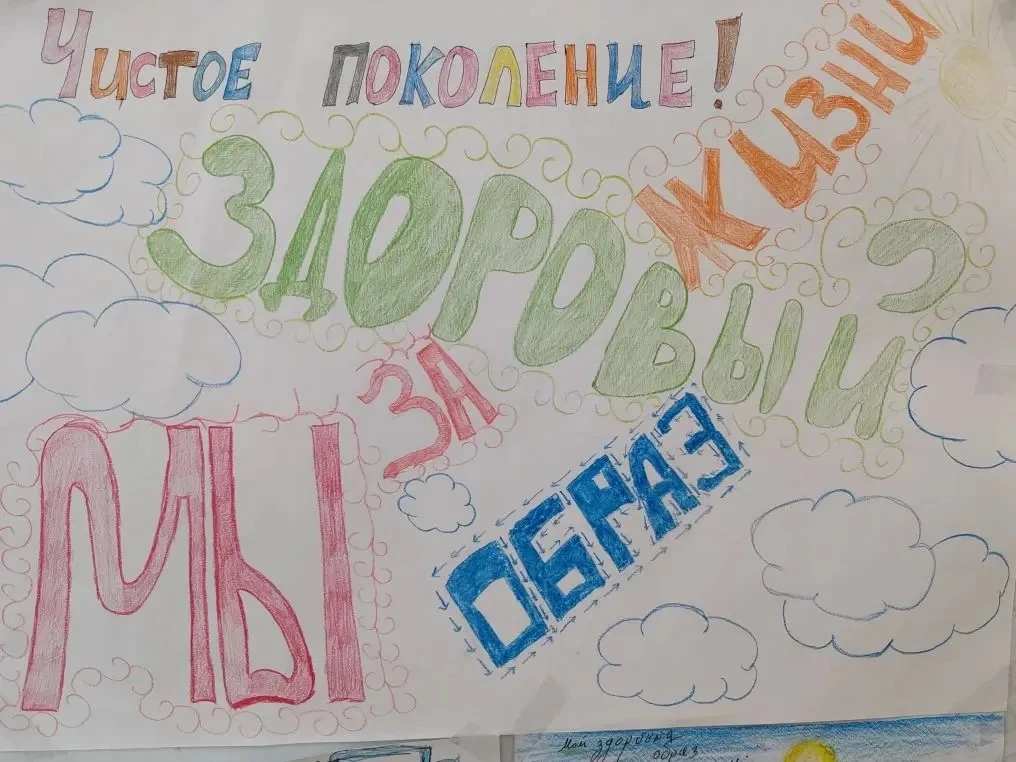 Чистое поколение!
МЫ
ЗА
ЗДОРОВЫЙ
ОБРАЗ
ЖИЗНИ
Мой здоровый
образ